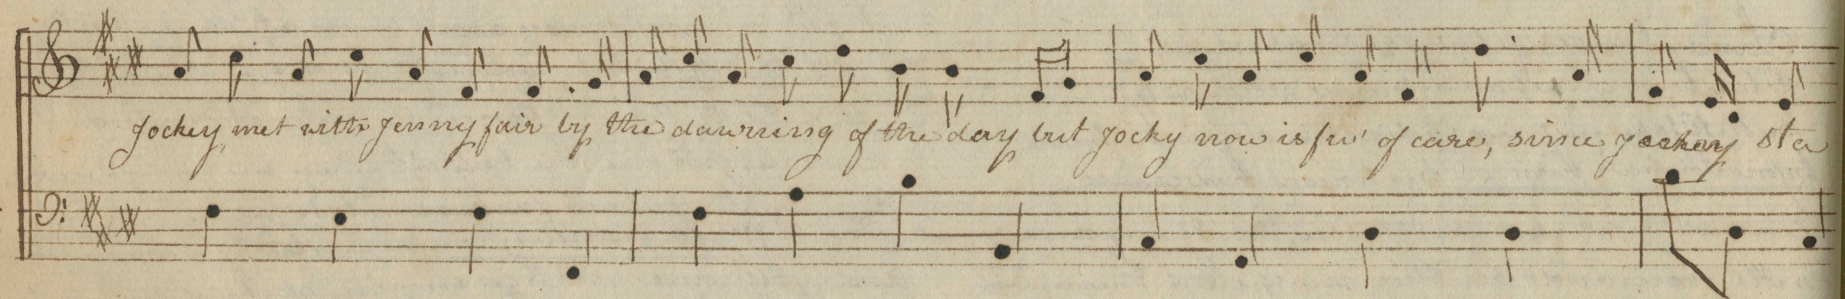 Jockey met with Jenny fair by the dawning of the day but Jocky now is fu' of care, since Jockey sta